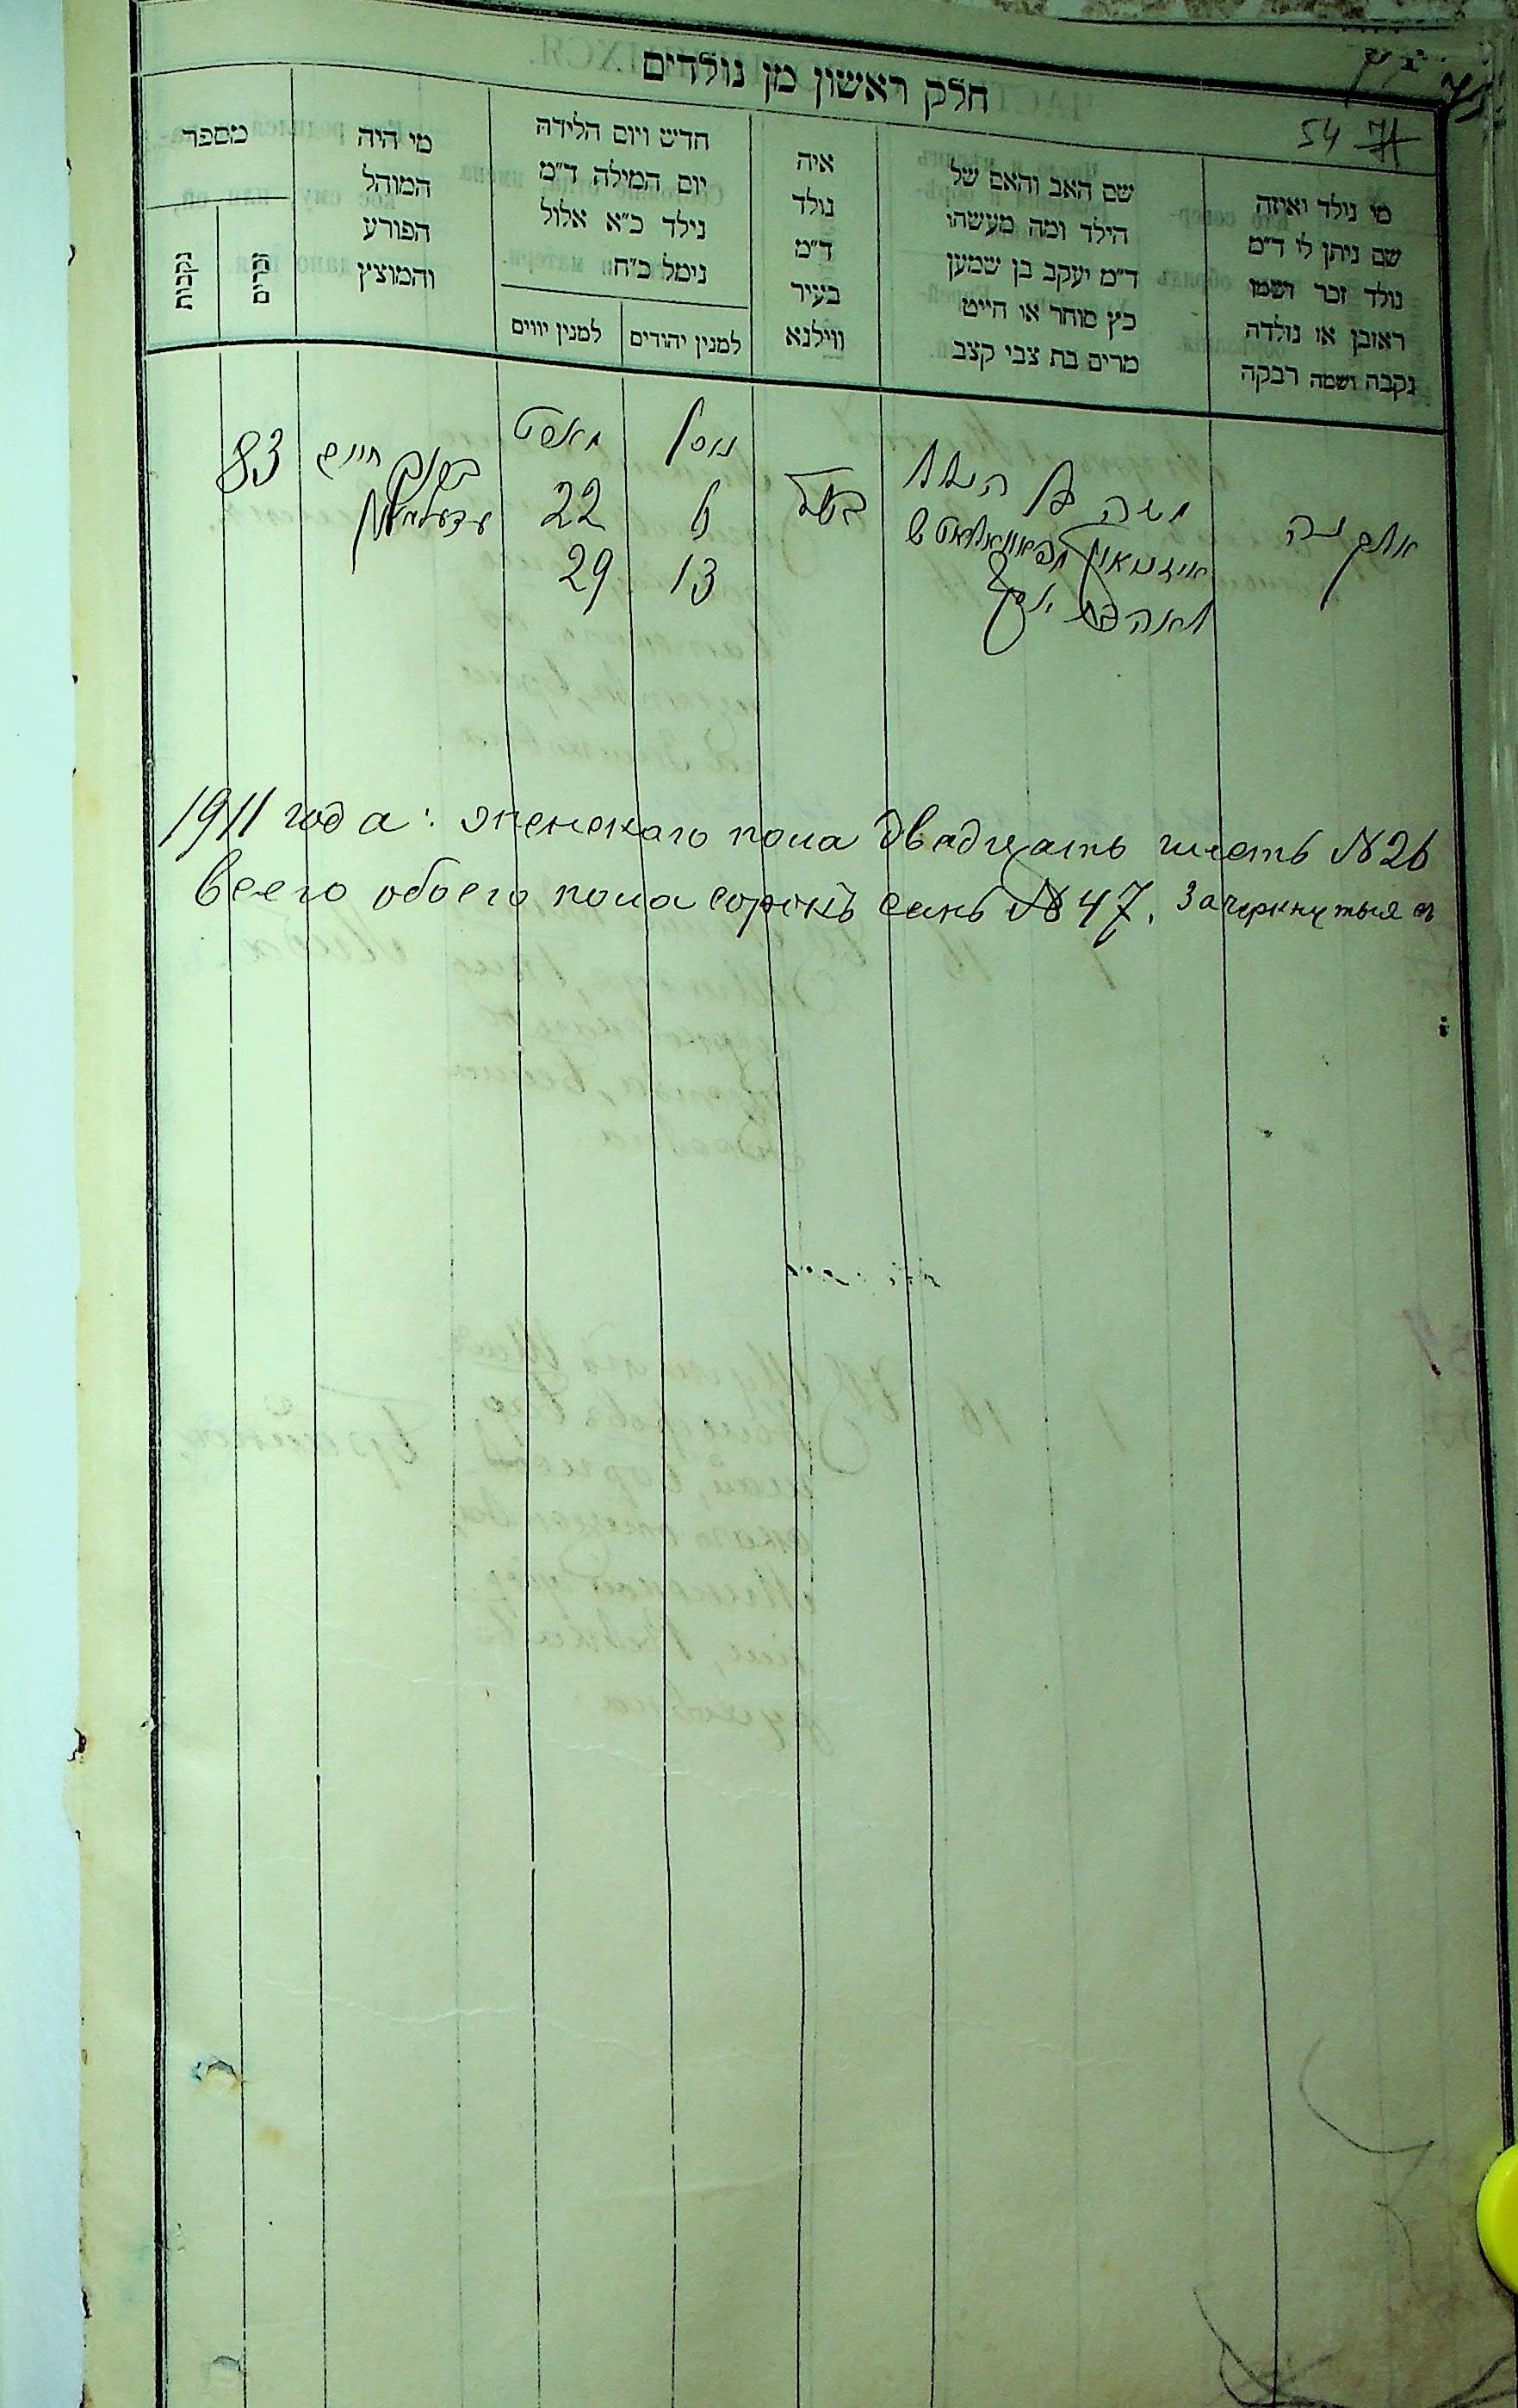 חלק ראשון מן נולדים
54
מי נולד ואיזה
שם ניתן לו ד"מ
נולד זכר ושמו
ראובן או נולדה
נקבה ושמה רבקה
שם האב והאם של
הילד ומה מעשהו
ד"מ יעקב בן שמען
כץ סוחר או חייט
מרים בת צבי קצב
איה
נולד
ד"מ
בעיר
ווילנא
חדש ויום הלידה
יום המילה ד"מ
נילד כ"א אלול
נימל כ"ח
למנין יהודים
למנין יווים
מי היה
המוהל
הפורע
והמוצץ
מספר
זכרים
נקבות
משה בן הלל
לאה בת יוסף
ניסן
6
13
מארט
22
29
חיים
83
1911 года: женскаго пола двадцать шесть №26
всего обоего пола сорокъ семь №47. Зачеркнутыя